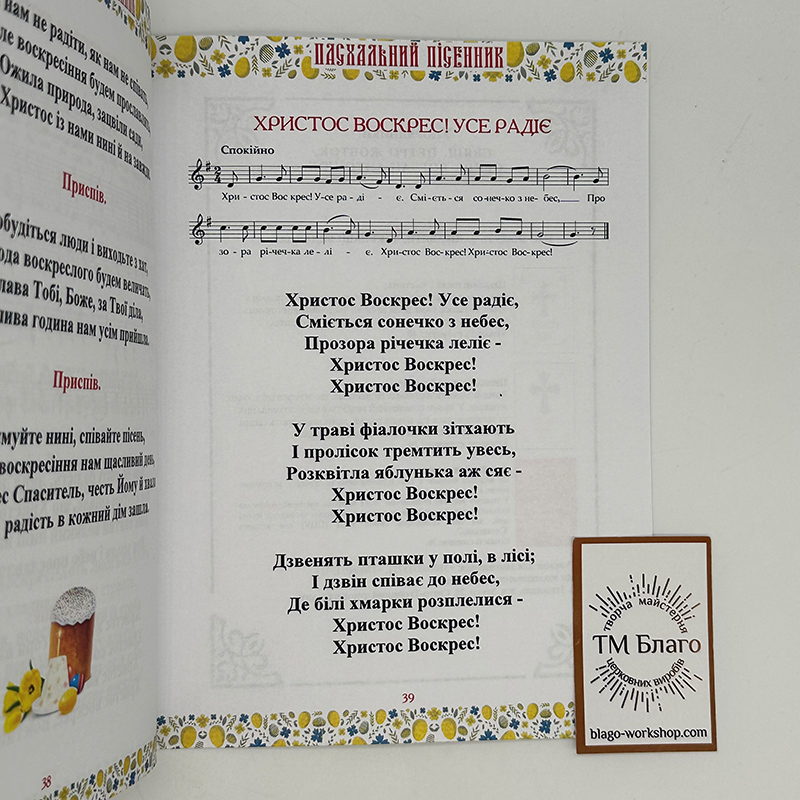 нам не радіти, як нам не співать,
воскресіння будем прославлять
Ожила природа, зацвіли сади,
Христос із нами нині й на завжди
Приспів.
обудіться люди і виходьте з хат,
воскреслого будем величать,
лава Тобі, Боже, за Твої діла,
лива година нам усім прийшла.
Приспів.
муйте нині, співайте пісень,
воскресіння нам щасливий день,
ес Спаситель, честь Йому й хвала
радість в кожний дім зашла.
38
ПАСХАЛЬНИЙ ПІСЕННИК
ХРИСТОС ВОСКРЕС! УСЕ РАДІЄ
Спокійно
Хри - стос Вос крес! У-се ра - ді - є. Смі-єть-ся со-неч-ко з не-бес,___ Про
зо - ра рі-чеч-ка ле - лі - є. Хри-стос Вос-крес! Хри-стос Вос-крес!
Христос Воскрес! Усе радіє,
Сміється сонечко з небес,
Прозора річечка леліє -
Христос Воскрес!
Христос Воскрес!
У траві фіалочки зітхають
І пролісок тремтить увесь,
Розквітла яблунька аж сяє -
Христос Воскрес!
Христос Воскрес!
Дзвенять пташки у полі, в лісі;
І дзвін співає до небес,
Де білі хмарки розплелися -
Христос Воскрес!
Христос Воскрес!
39
творча майстерня
ТМ Благо
церковних виробів
blago-workshop.com